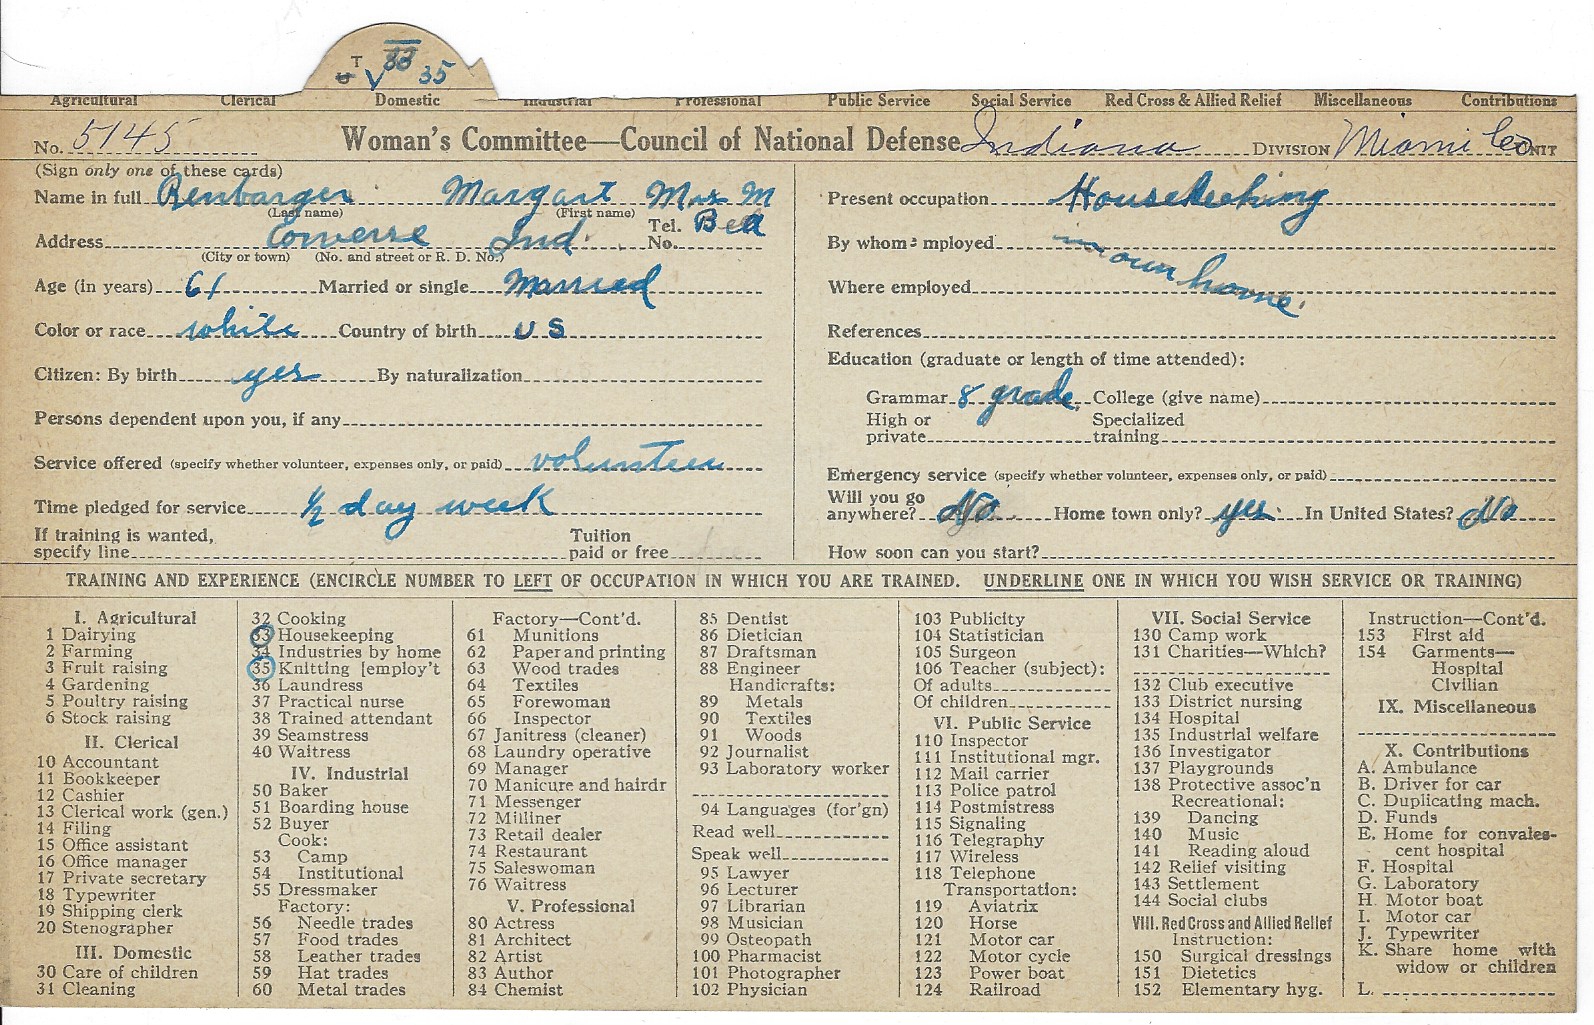 T 33 35
Agricultural Clerical Domestic Industrial Professional Public Service Social Service Red Cross & Allied Relief Miscellaneous Contributions
No. 5145 Woman's Committee—Council of National Defense Indiana DIVISION Miami Co UNIT
(Sign only one of these cards)
Name in full Renbarger Margart Mrs M
(Last name) (First name)
Address Converse Ind. Tel. No. Bell
(City or town) (No. and street or R. D. No.)
Age (in years) 61 Married or single Married
Color or race white Country of birth US
Citizen: By birth yes By naturalization
Persons dependent upon you, if any
Service offered (specify whether volunteer, expenses only, or paid) volunteer
Time pledged for service ½ day week
If training is wanted,
specify line Tuition paid or free
Present occupation Housekeeking
By whom employed in own home.
Where employed
References
Education (graduate or length of time attended):
Grammar 8 grade, College (give name)
High or private Specialized training
Emergency service (specify whether volunteer, expenses only, or paid)
Will you go anywhere? No Home town only? yes In United States? No
How soon can you start?
TRAINING AND EXPERIENCE (ENCIRCLE NUMBER TO LEFT OF OCCUPATION IN WHICH YOU ARE TRAINED. UNDERLINE ONE IN WHICH YOU WISH SERVICE OR TRAINING)
I. Agricultural
1 Dairying
2 Farming
3 Fruit raising
4 Gardening
5 Poultry raising
6 Stock raising
II. Clerical
10 Accountant
11 Bookkeeper
12 Cashier
13 Clerical work (gen.)
14 Filing
15 Office assistant
16 Office manager
17 Private secretary
18 Typewriter
19 Shipping clerk
20 Stenographer
III. Domestic
30 Care of children
31 Cleaning
32 Cooking
33 Housekeeping
34 Industries by home
35 Knitting [employ't
36 Laundress
37 Practical nurse
38 Trained attendant
39 Seamstress
40 Waitress
IV. Industrial
50 Baker
51 Boarding house
52 Buyer
Cook:
53 Camp
54 Institutional
55 Dressmaker
Factory:
56 Needle trades
57 Food trades
58 Leather trades
59 Hat trades
60 Metal trades
Factory—Cont'd.
61 Munitions
62 Paper and printing
63 Wood trades
64 Textiles
65 Forewoman
66 Inspector
67 Janitress (cleaner)
68 Laundry operative
69 Manager
70 Manicure and hairdr
71 Messenger
72 Milliner
73 Retail dealer
74 Restaurant
75 Saleswoman
76 Waitress
V. Professional
80 Actress
81 Architect
82 Artist
83 Author
84 Chemist
85 Dentist
86 Dietician
87 Draftsman
88 Engineer
Handicrafts:
89 Metals
90 Textiles
91 Woods
92 Journalist
93 Laboratory worker
94 Languages (for'gn)
Read well
Speak well
95 Lawyer
96 Lecturer
97 Librarian
98 Musician
99 Osteopath
100 Pharmacist
101 Photographer
102 Physician
103 Publicity
104 Statistician
105 Surgeon
106 Teacher (subject):
Of adults
Of children
VI. Public Service
110 Inspector
111 Institutional mgr.
112 Mail carrier
113 Police patrol
114 Postmistress
115 Signaling
116 Telegraphy
117 Wireless
118 Telephone
Transportation:
119 Aviatrix
120 Horse
121 Motor car
122 Motor cycle
123 Power boat
124 Railroad
VII. Social Service
130 Camp work
131 Charities—Which?
132 Club executive
133 District nursing
134 Hospital
135 Industrial welfare
136 Investigator
137 Playgrounds
138 Protective assoc'n
Recreational:
139 Dancing
140 Music
141 Reading aloud
142 Relief visiting
143 Settlement
144 Social clubs
VIII. Red Cross and Allied Relief
Instruction:
150 Surgical dressings
151 Dietetics
152 Elementary hyg.
Instruction—Cont'd.
153 First aid
154 Garments—
Hospital
Civilian
IX. Miscellaneous
X. Contributions
A. Ambulance
B. Driver for car
C. Duplicating mach.
D. Funds
E. Home for convales-
cent hospital
F. Hospital
G. Laboratory
H. Motor boat
I. Motor car
J. Typewriter
K. Share home with
widow or children
L.